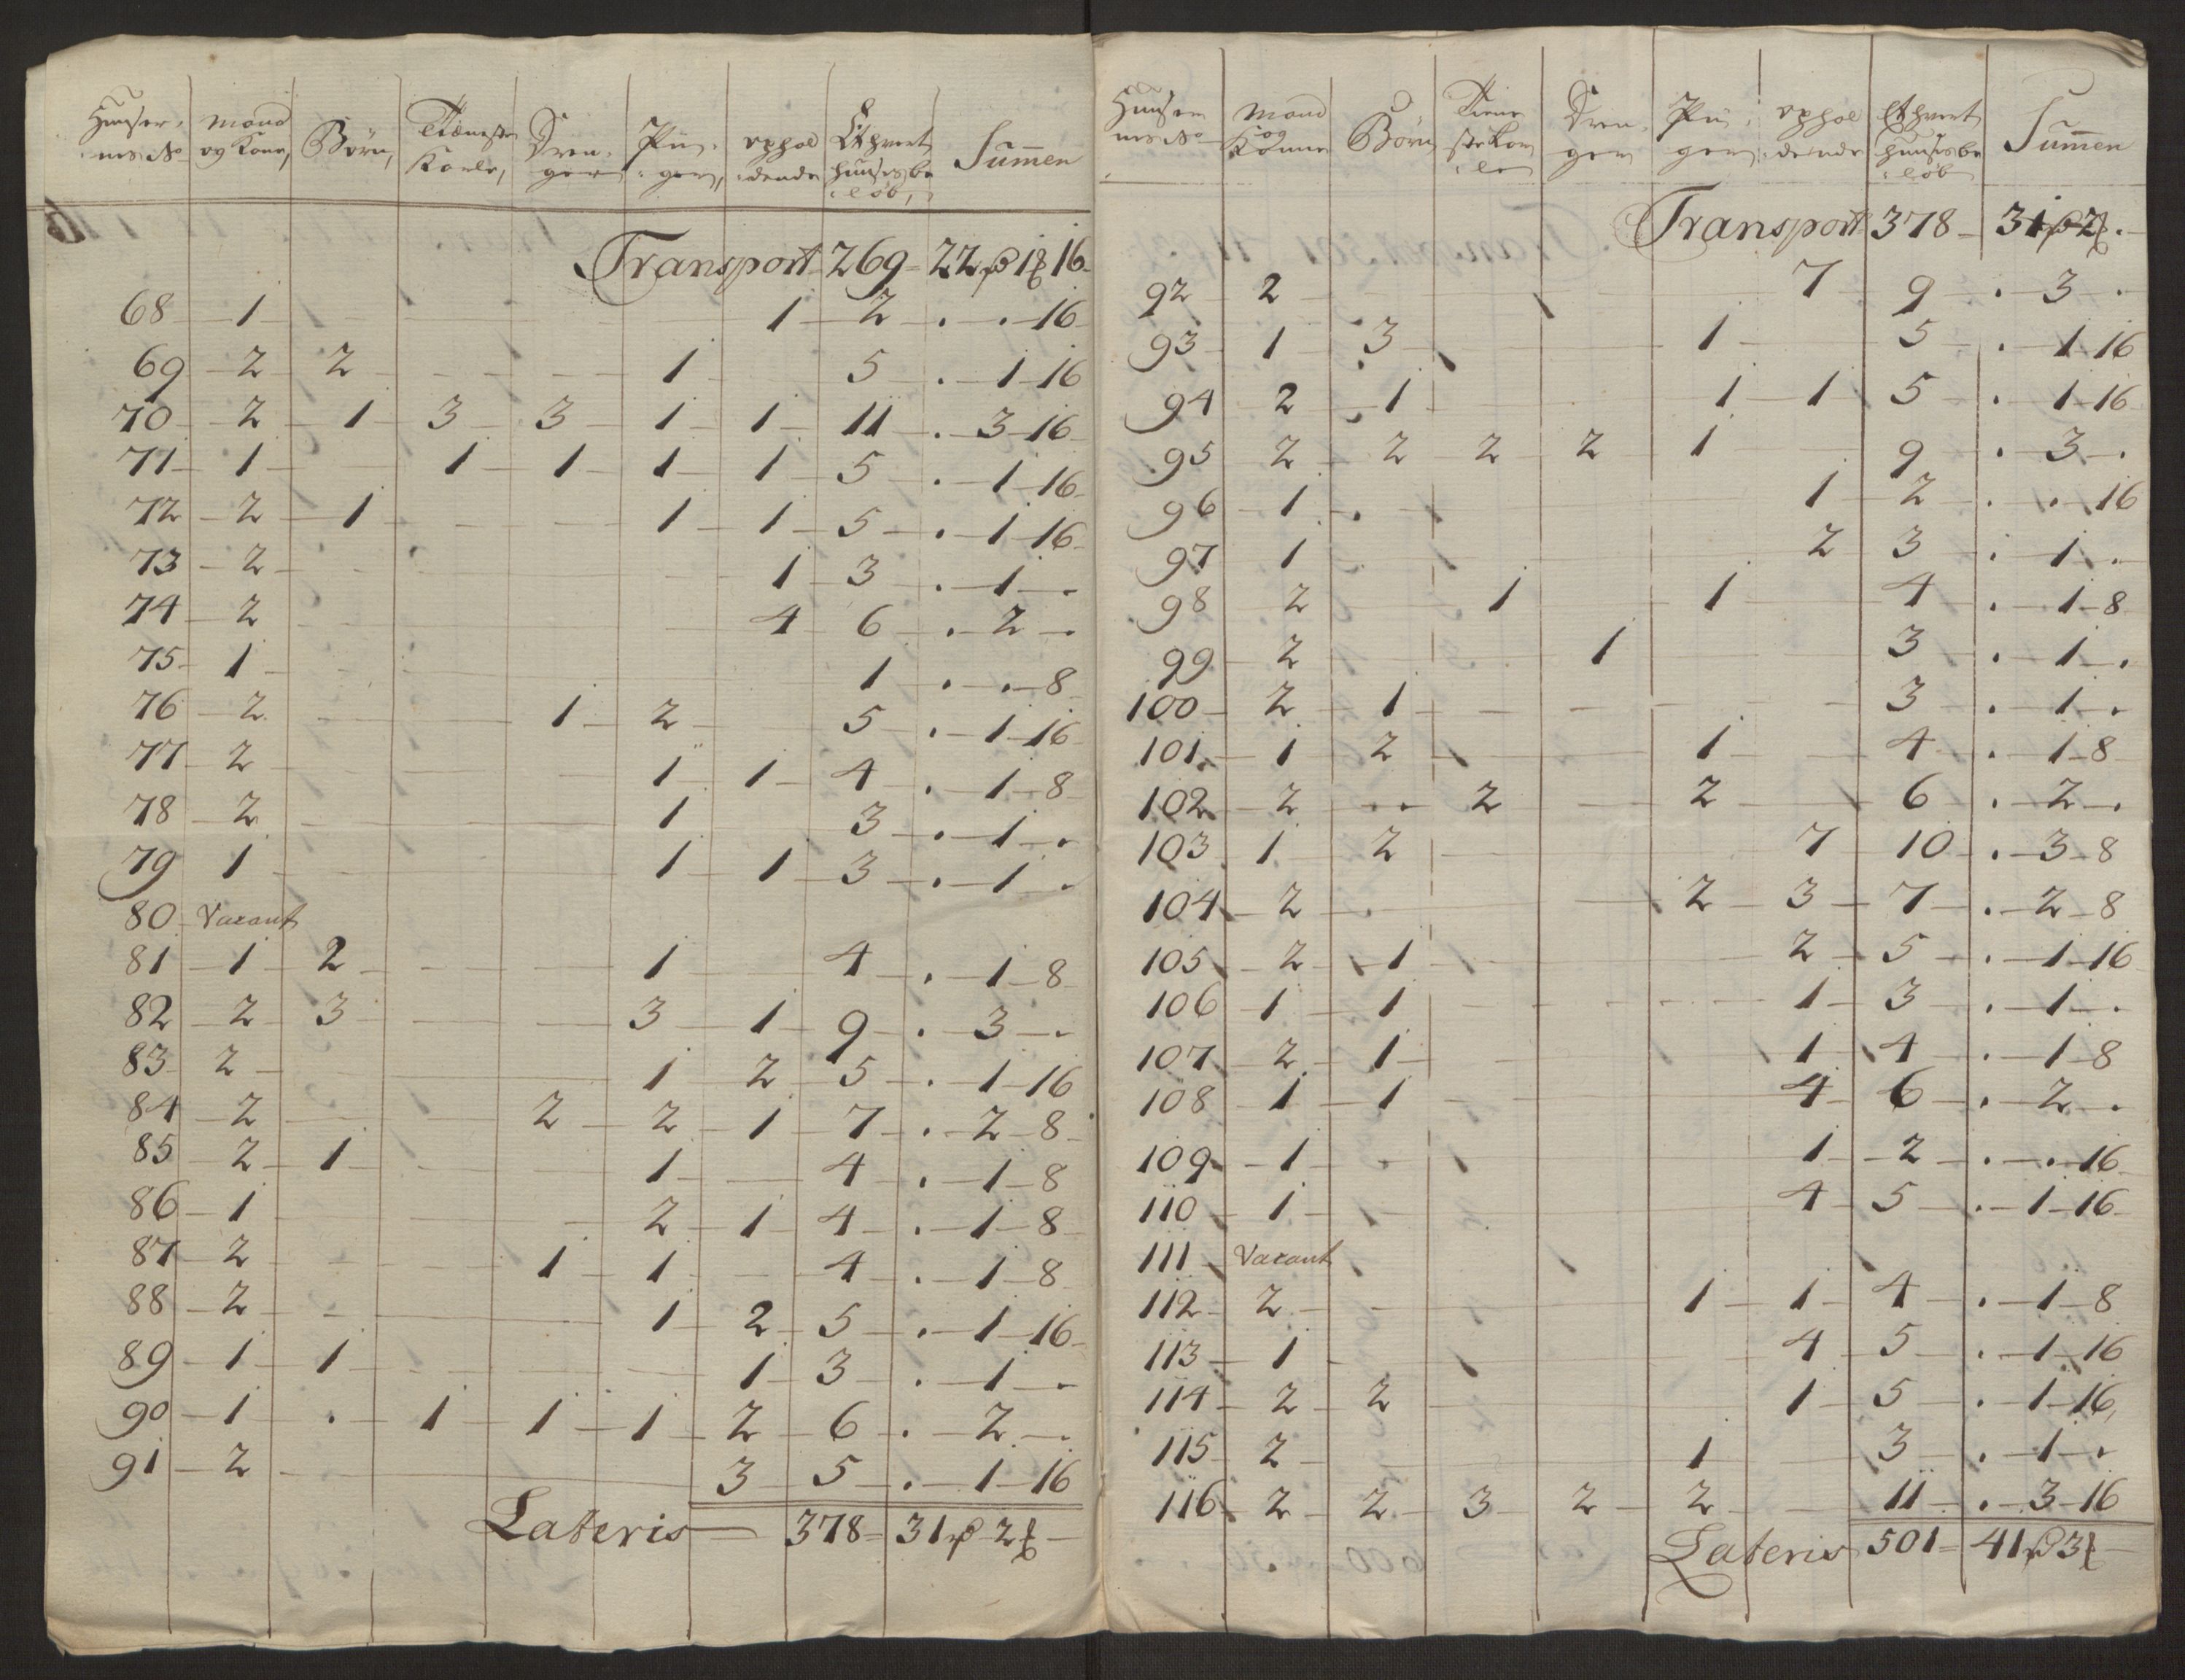 Huuser- mand Börn, Tieneste Dren- Pii- ophol Et hvert Summen
nes No og Kone, Karle, ger ger, dende huuses be
löb,
Transport 269 - 22 rd 1 ₰ 16
68 - 1 - 1 - 2 - . - . - 16
69 - 2 - 2 - 1 - 5 - . - 1 - 16
70 - 2 - 1 - 3 - 3 - 1 - 1 - 11 - . - 3 - 16
71 - 1 - 1 - 1 - 1 - 1 - 5 - . - 1 - 16
72 - 2 - 1 - 1 - 1 - 5 - . - 1 - 16
73 - 2 - 1 - 3 - . - 1 - .
74 - 2 - 4 - 6 - . - 2 - .
75 - 1 - 1 - . - . - 8
76 - 2 - 1 - 2 - 5 - . - 1 - 16
77 - 2 - 1 - 1 - 4 - . - 1 - 8
78 - 2 - 1 - 3 - . - 1 - .
79 - 1 - 1 - 1 - 3 - . - 1 - .
80 - Vacant
81 - 1 - 2 - 1 - 4 - . - 1 - 8
82 - 2 - 3 - 3 - 1 - 9 - . - 3 - .
83 - 2 - 1 - 2 - 5 - . - 1 - 16
84 - 2 - 2 - 2 - 1 - 7 - . - 2 - 8
85 - 2 - 1 - 1 - 4 - . - 1 - 8
86 - 1 - 2 - 1 - 4 - . - 1 - 8
87 - 2 - 1 - 1 - 4 - . - 1 - 8
88 - 2 - 1 - 2 - 5 - . - 1 - 16
89 - 1 - 1 - 1 - 3 - . - 1 - .
90 - 1 - . - 1 - 1 - 1 - 2 - 6 - . - 2 - .
91 - 2 - 3 - 5 - . - 1 - 16
Lateris - 378 - 31 rd 2 ₰ -
Huuser mand Börn Tiene Dren- Pii- ophol Et hvert Summen
nes No og Konner ste Kar ger ger dende huuses be
le löb
Transport 378 - 31 rd 2 ₰ . -
92 - 2 - 7 - 9 - . - 3 - .
93 - 1 - 3 - 1 - 5 - . - 1 - 16
94 - 2 - 1 - 1 - 1 - 5 - . - 1 - 16
95 - 2 - 2 - 2 - 2 - 1 - 9 - . - 3 - .
96 - 1 - . - 1 - 2 - . - . - 16
97 - 1 - 2 - 3 - . - 1 - .
98 - 2 - 1 - 1 - 4 - . - 1 - 8
99 - 2 - 1 - 3 - . - 1 - .
100 - 2 - 1 - 3 - . - 1 - .
101 - 1 - 2 - 1 - 4 - . - 1 - 8
102 - 2 - . . - 2 - 2 - 6 - . - 2 - .
103 - 1 - 2 - 7 - 10 - . - 3 - 8
104 - 2 - . - 2 - 3 - 7 - . - 2 - 8
105 - 2 - 1 - 2 - 5 - . - 1 - 16
106 - 1 - 1 - 1 - 3 - . - 1 - .
107 - 2 - 1 - 1 - 4 - . - 1 - 8
108 - 1 - 1 - 4 - 6 - . - 2 - .
109 - 1 - 1 - 2 - . - . - 16
110 - 1 - 4 - 5 - . - 1 - 16
111 - Vacant
112 - 2 - 1 - 1 - 4 - . - 1 - 8
113 - 1 - 4 - 5 - . - 1 - 16
114 - 2 - 2 - 1 - 5 - . - 1 - 16
115 - 2 - 1 - 3 - . - 1 - .
116 - 2 - 2 - 3 - 2 - 2 - 11 - . - 3 - 16
Lateris 501 - 41 rd 3 ₰ -